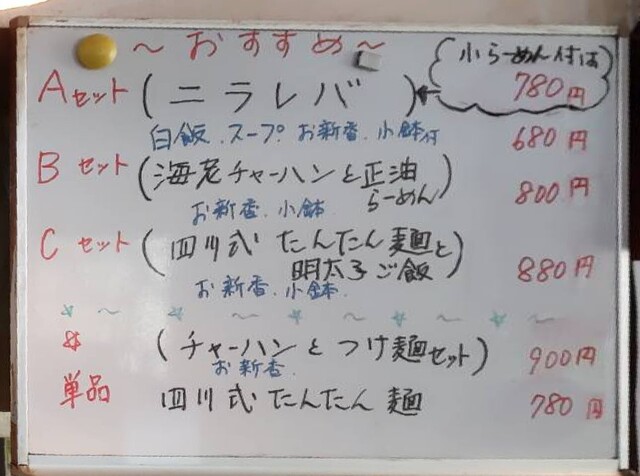 ～おすすめ～
小らーめん付は
780円
Aセット(ニラレバ)
白飯.スープ.お新香.小鉢付 680円
Bセット(海老チャーハンと正油
らーめん) 800円
お新香.小鉢
Cセット(四川式たんたん麺と
明太子ご飯) 880円
お新香.小鉢.
☆～☆～☆～☆～☆～
(チャーハンとつけ麺セット) 900円
お新香.
単品 四川式たんたん麺 780円